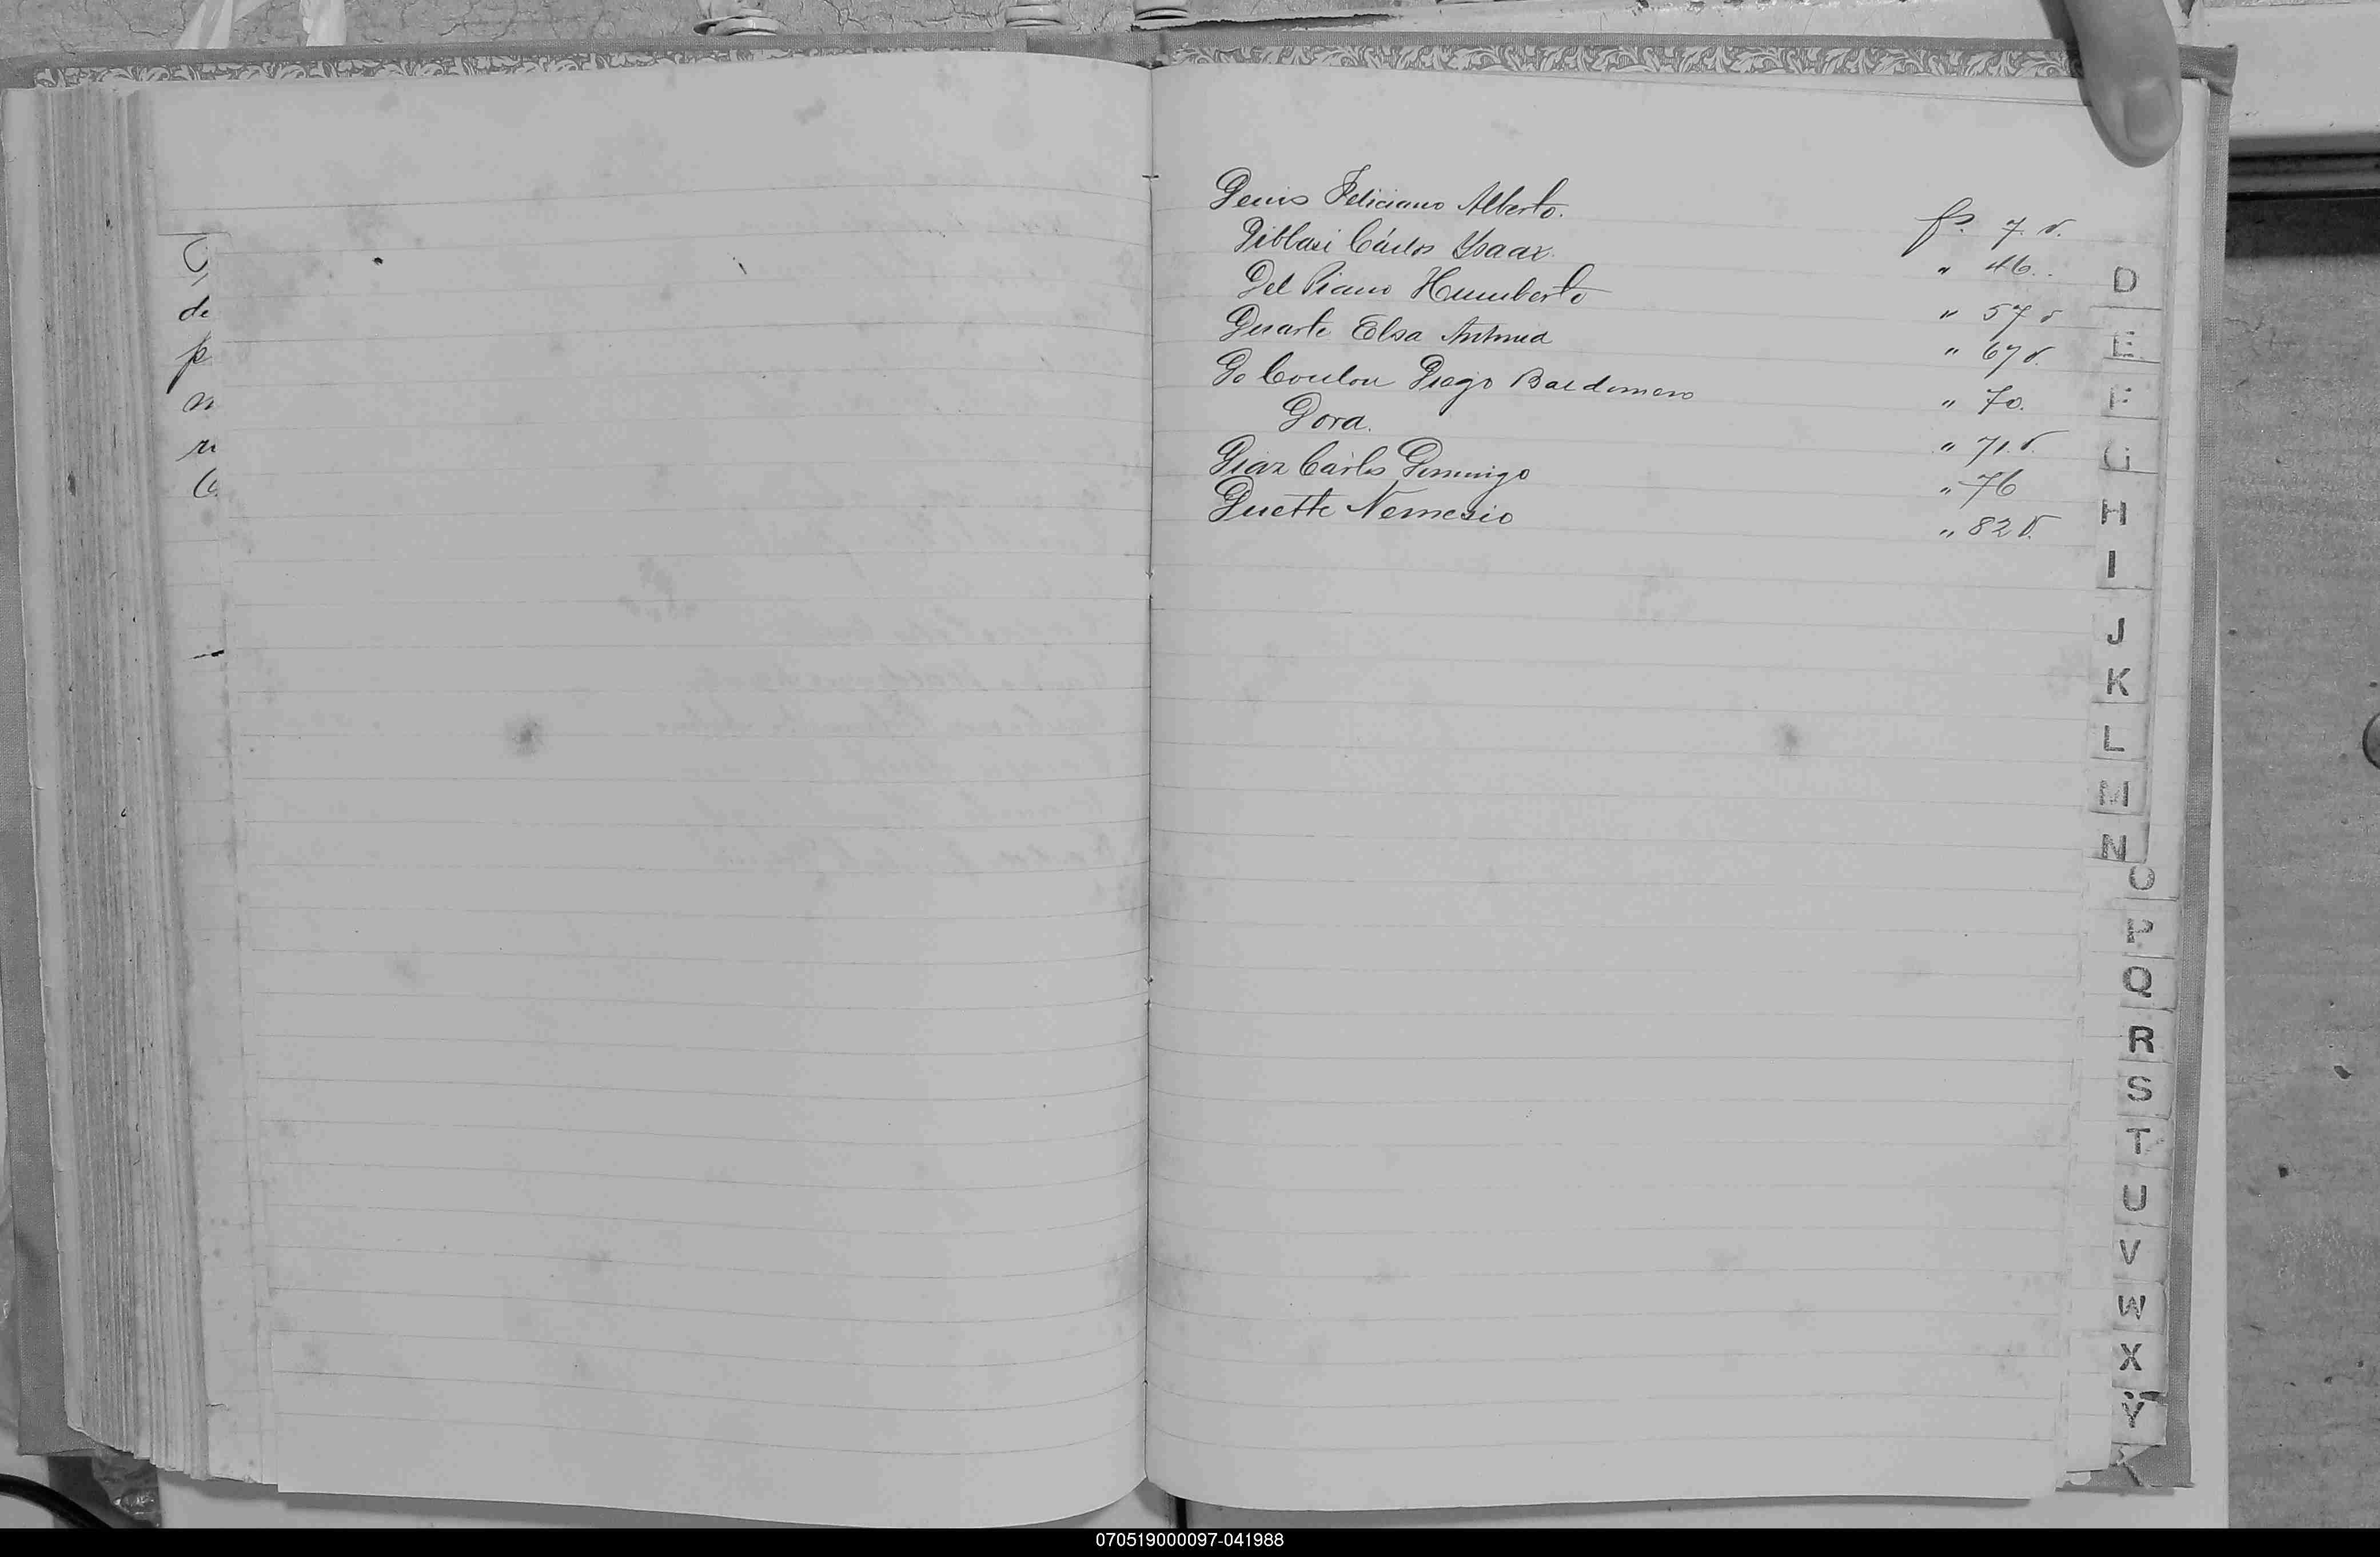 Denis Feliciano Alberto. fs. 7. v.
Diblasi Cárlos Ysaax. " 46..
Del Piano Humberto " 57 v
Duarte Elsa Antonia " 67 v.
De Coulon Diego Baldomero " 70.
Dora. " 71. v.
Diaz Cárlos Domingo " 76
Duette Nemesio " 82 v.
de
p
D
E
F
G
H
I
J
K
L
M
N
O
P
Q
R
S
T
U
V
W
X
Y
070519000097-041988